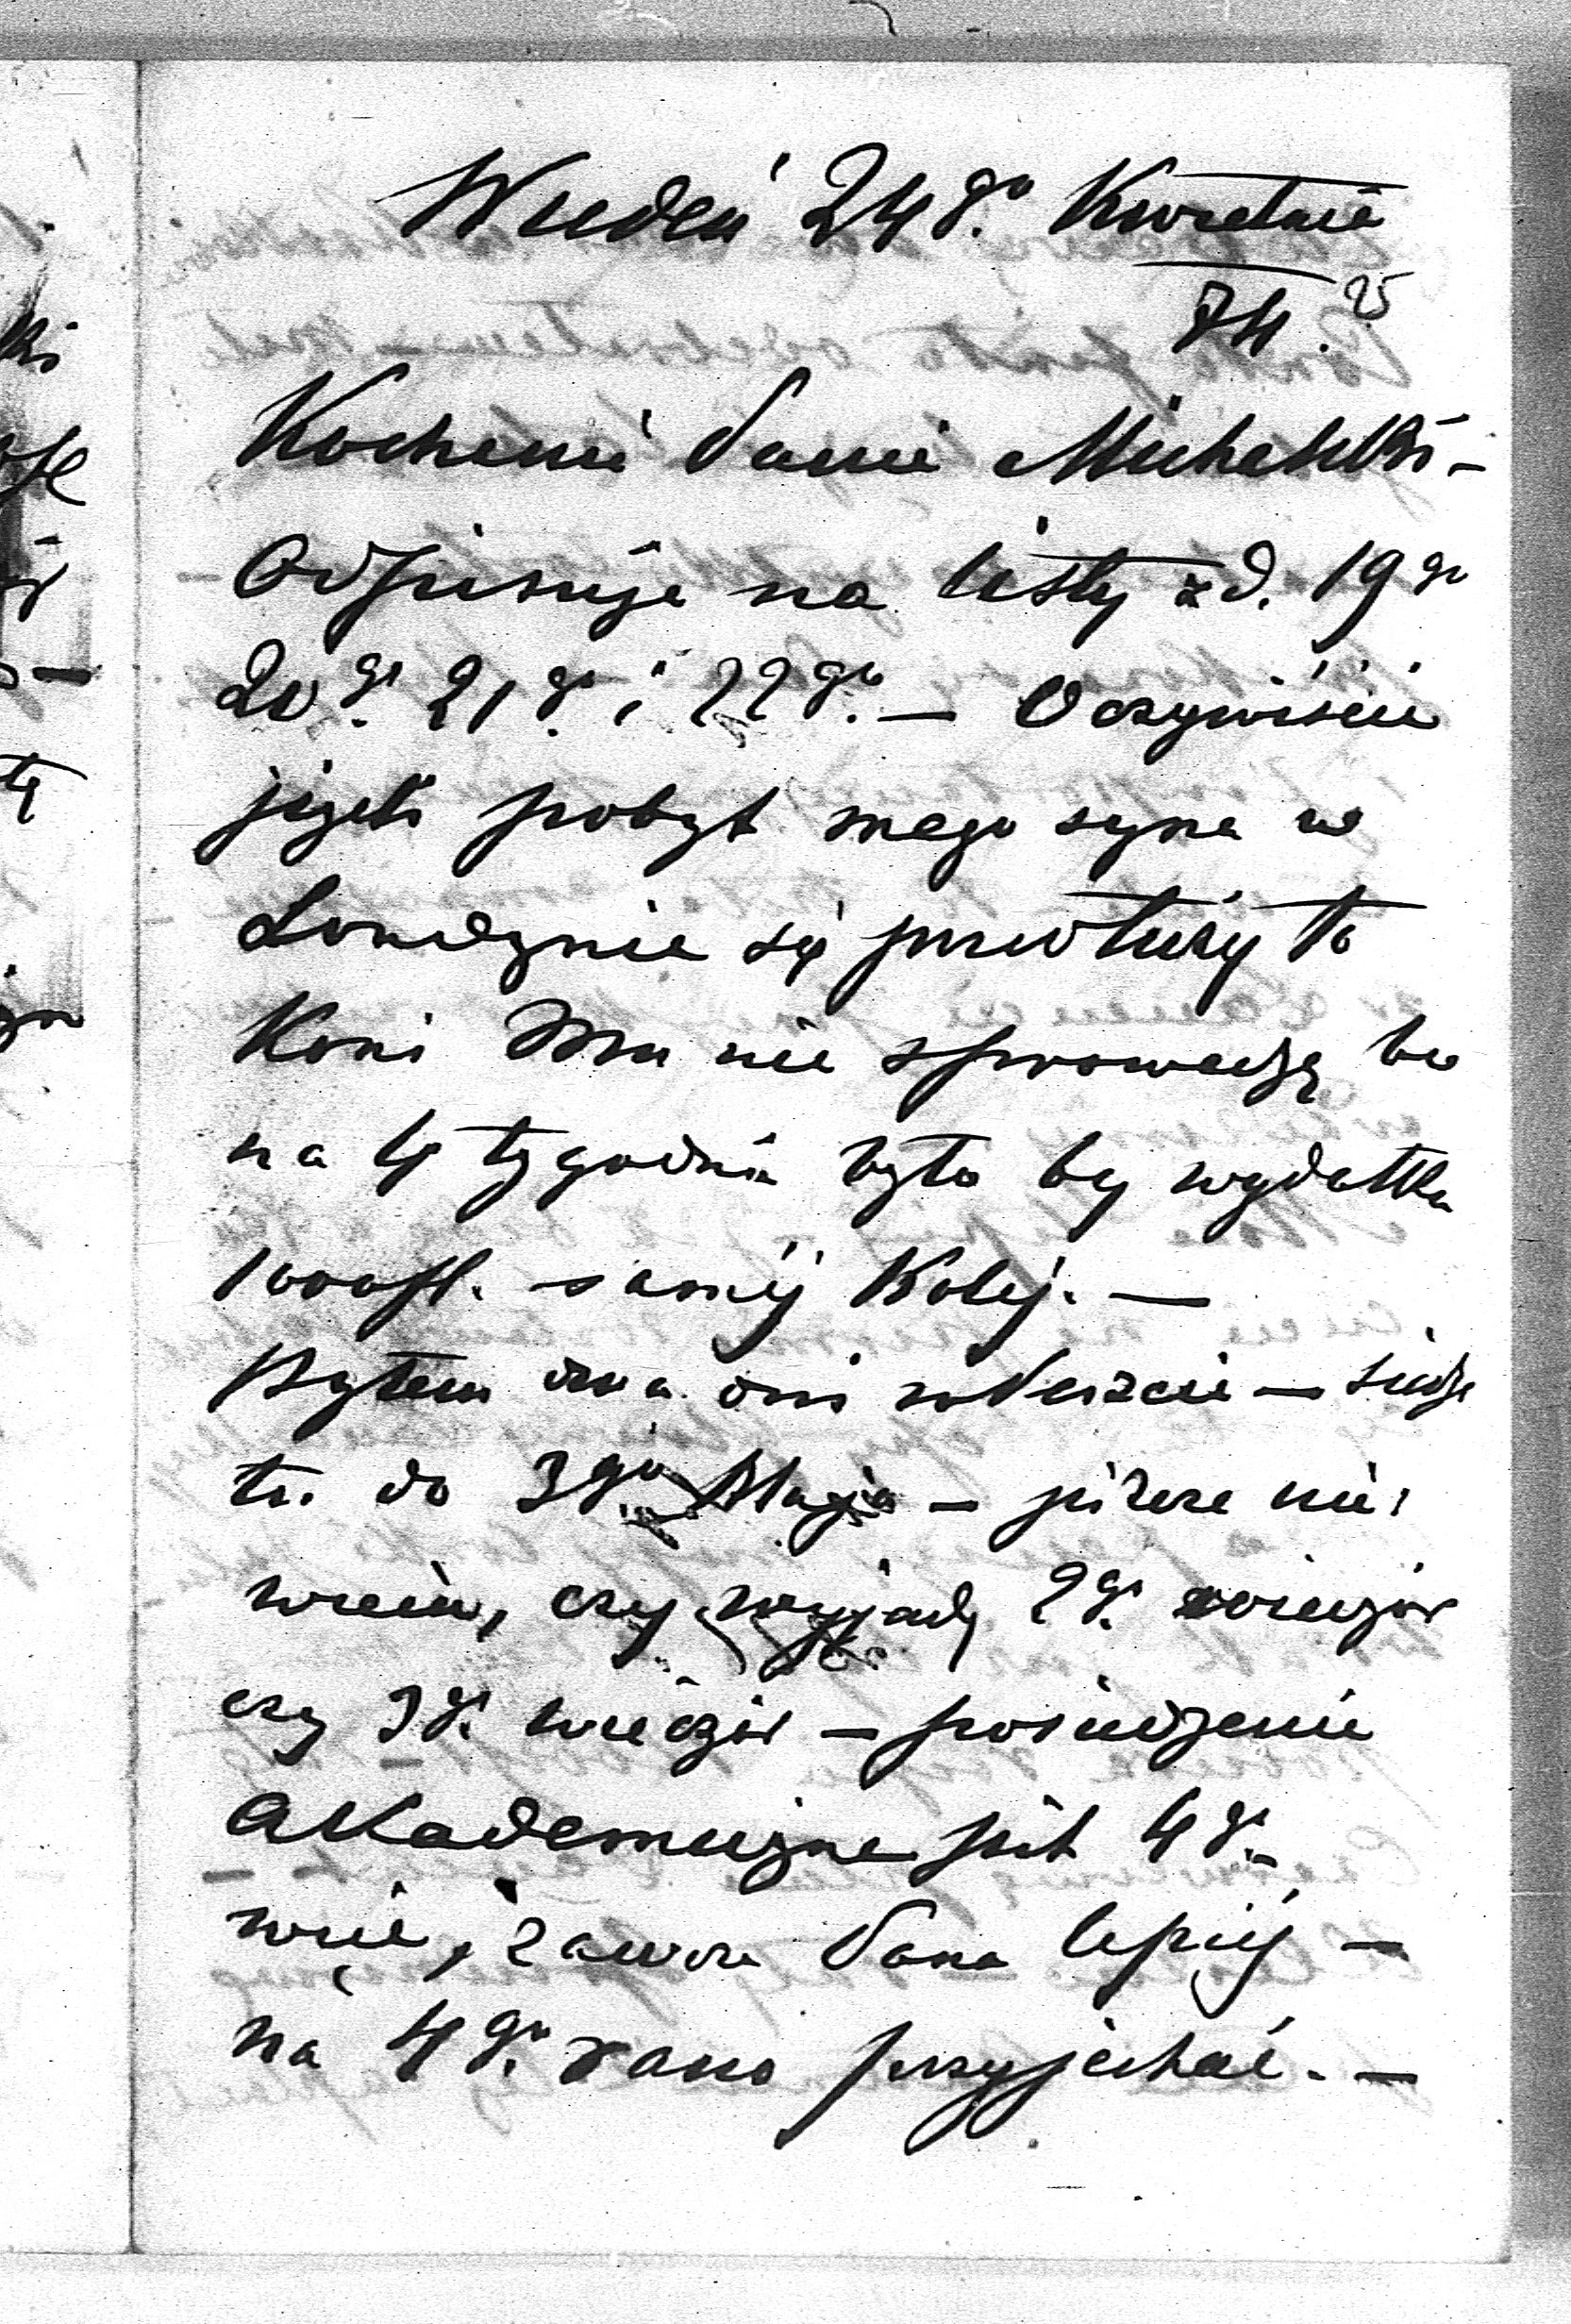 Wiedeń 24go Kwietnia
74. 25
Kochany Panie Michalski –
Odpisuję na listy z d. 19go
20go 21go i 22go. — Oczywiście
jeżeli pobyt mego syna w
Londynie się przedłuży to
Koni Mu nie sprowadzę bo
na 4 tygodnie było by wydatku
1000 fl. samej Kolej. —
Byłem dwa dni w Peszcie — siedzę
tu do 3go Maja — jeszcze nie
wiem, czy wyjadę 2go wieczór
czy 3go wieczór — posiedzenie
Akademiczne jest 4go –
więc, zawsze Pana lepiej —
na 4go rano przyjechać. —